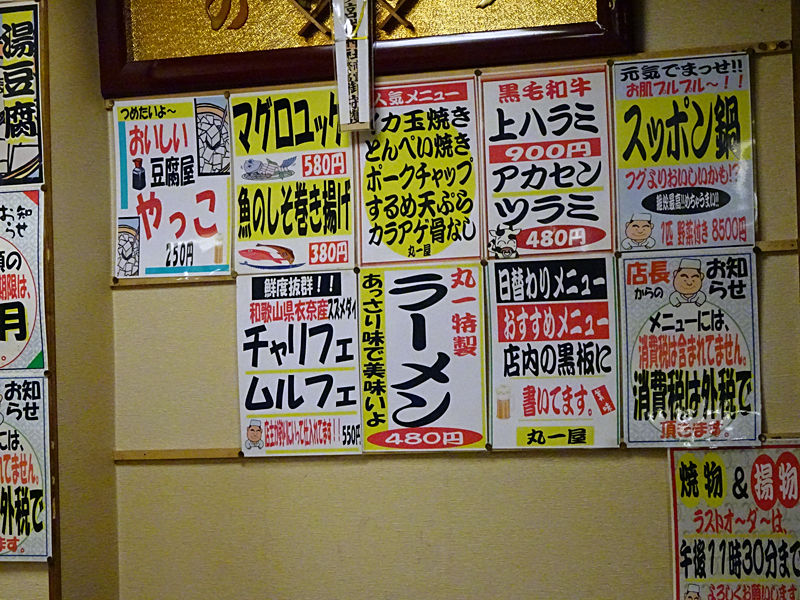 湯豆腐
お知らせ
期限は、
月
お知らせ
外税で
つめたいよ～
おいしい
豆腐屋
やっこ
250円
マグロユッケ
580円
魚のしそ巻き揚げ
380円
人気メニュー
イカ玉焼き
とんぺい焼き
ポークチャップ
するめ天ぷら
カラアゲ骨なし
丸一屋
黒毛和牛
上ハラミ
900円
アカセン
ツラミ
480円
元気でまっせ!!
お肌プルプル～！！
スッポン鍋
フグよりおいしいかも!?
雑炊最高!!めちゃうまい!!
1匹 野菜付き 8500円
鮮度抜群！！
和歌山県衣奈産スズメダイ
チャリフェ
ムルフェ
550円
丸一特製
ラーメン
あっさり味で美味いよ
480円
日替わりメニュー
おすすめメニュー
店内の黒板に
書いてます。
丸一屋
店長からのお知らせ
メニューには、
消費税は含まれてません。
消費税は外税で
頂きます。
焼物&揚物
ラストオ～ダ～は、
午後11時30分まで
よろしくお願いします